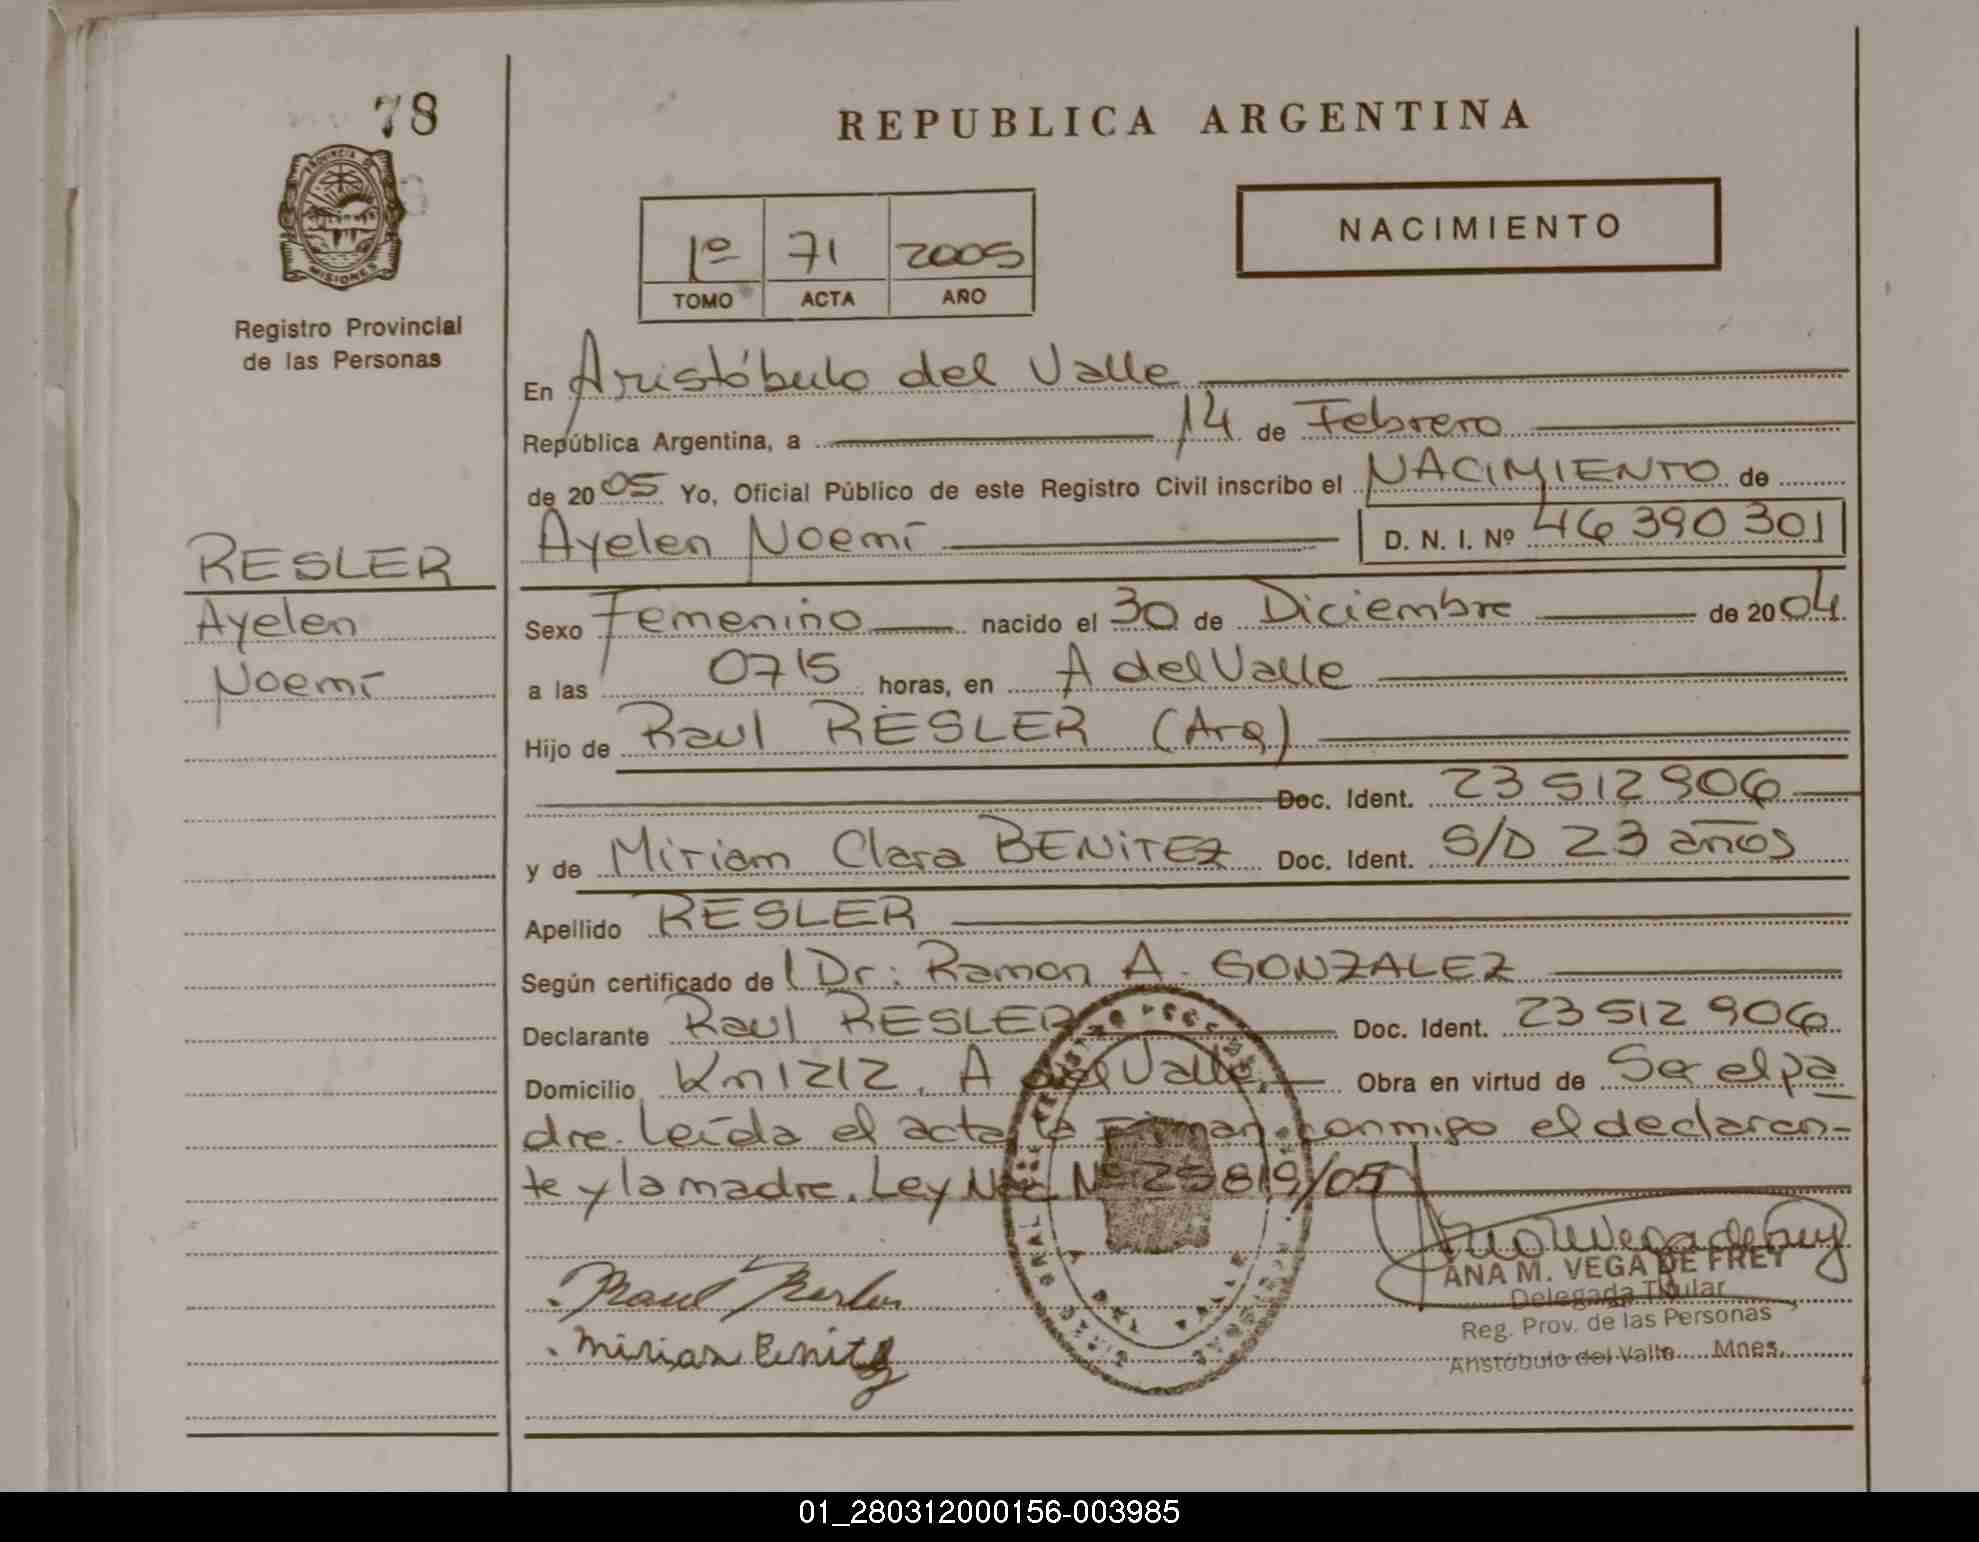 78
PROVINCIA DE
MISIONES
Registro Provincial
de las Personas
RESLER
Ayelen
Noemí
REPUBLICA ARGENTINA
1º 71 2005
TOMO ACTA AÑO
NACIMIENTO
En Aristóbulo del Valle
República Argentina, a 14 de Febrero
de 2005 Yo, Oficial Público de este Registro Civil inscribo el NACIMIENTO de
Ayelen Noemí D. N. I. Nº 46 390 301
Sexo Femenino nacido el 30 de Diciembre de 2004
a las 0715 horas, en A del Valle
Hijo de Raul RESLER (Arg)
Doc. Ident. 23 512 906
y de Miriam Clara BENITEZ Doc. Ident. S/D 23 años
Apellido RESLER
Según certificado de l Dr: Ramon A. GONZALEZ
Declarante Raul RESLER Doc. Ident. 23 512 906
Domicilio Km 1212. A del Valle. Obra en virtud de Ser el pa
dre. Leída el acta la Firman conmigo el declaran-
te y la madre. Ley Nac Nº 25819/05
Raul Resler
Miriam Benitez
ANA M. VEGA DE FREY
Delegada Titular
Reg. Prov. de las Personas
Aristóbulo del Valle Mnes.
01_280312000156-003985